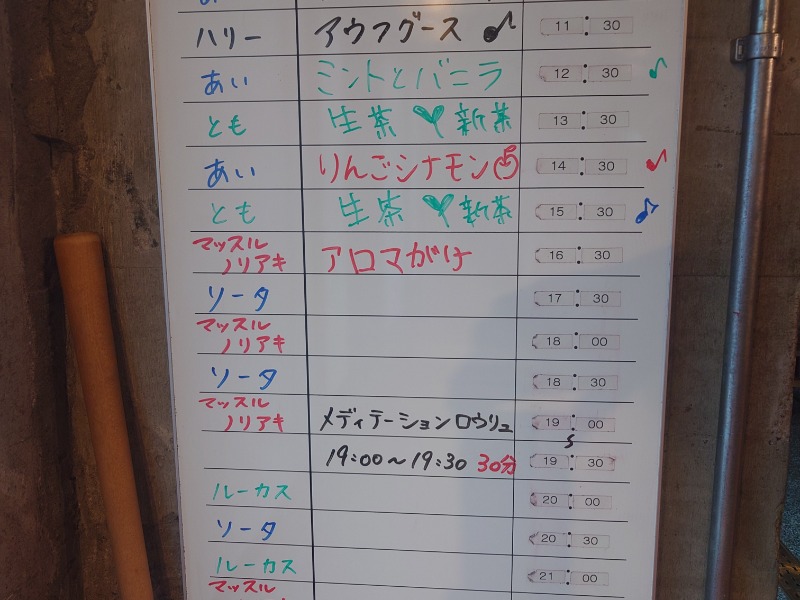 ハリー アウフグース 11:30
あい ミントとバニラ 12:30
とも 生茶 新茶 13:30
あい りんごシナモン 14:30
とも 生茶 新茶 15:30
マッスル
ノリアキ アロマがけ 16:30
ソータ 17:30
マッスル
ノリアキ 18:00
ソータ 18:30
マッスル
ノリアキ メディテーションロウリュ 19:00
19:00～19:30 30分 19:30
ルーカス 20:00
ソータ 20:30
ルーカス 21:00
マッスル